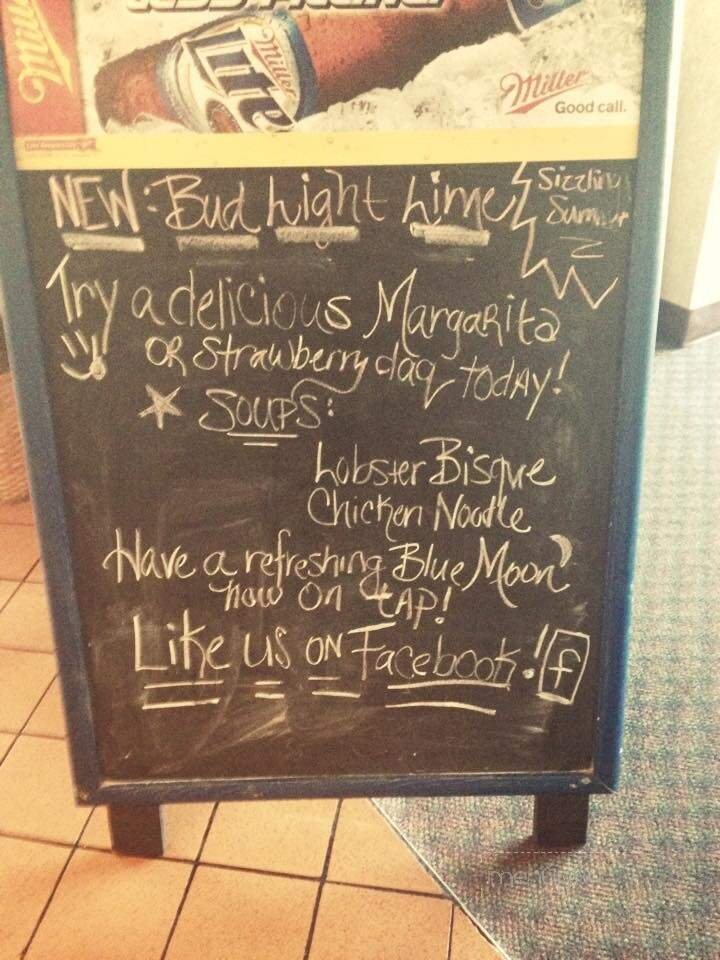 Miller
Lite
Miller
Miller
Good call.
NEW: Bud Light Lime
Sizzling
Summer
Try a delicious Margarita
OR Strawberry daq today!
SOUPS:
Lobster Bisque
Chicken Noodle
Have a refreshing Blue Moon
now on TAP!
Like us on Facebook! f